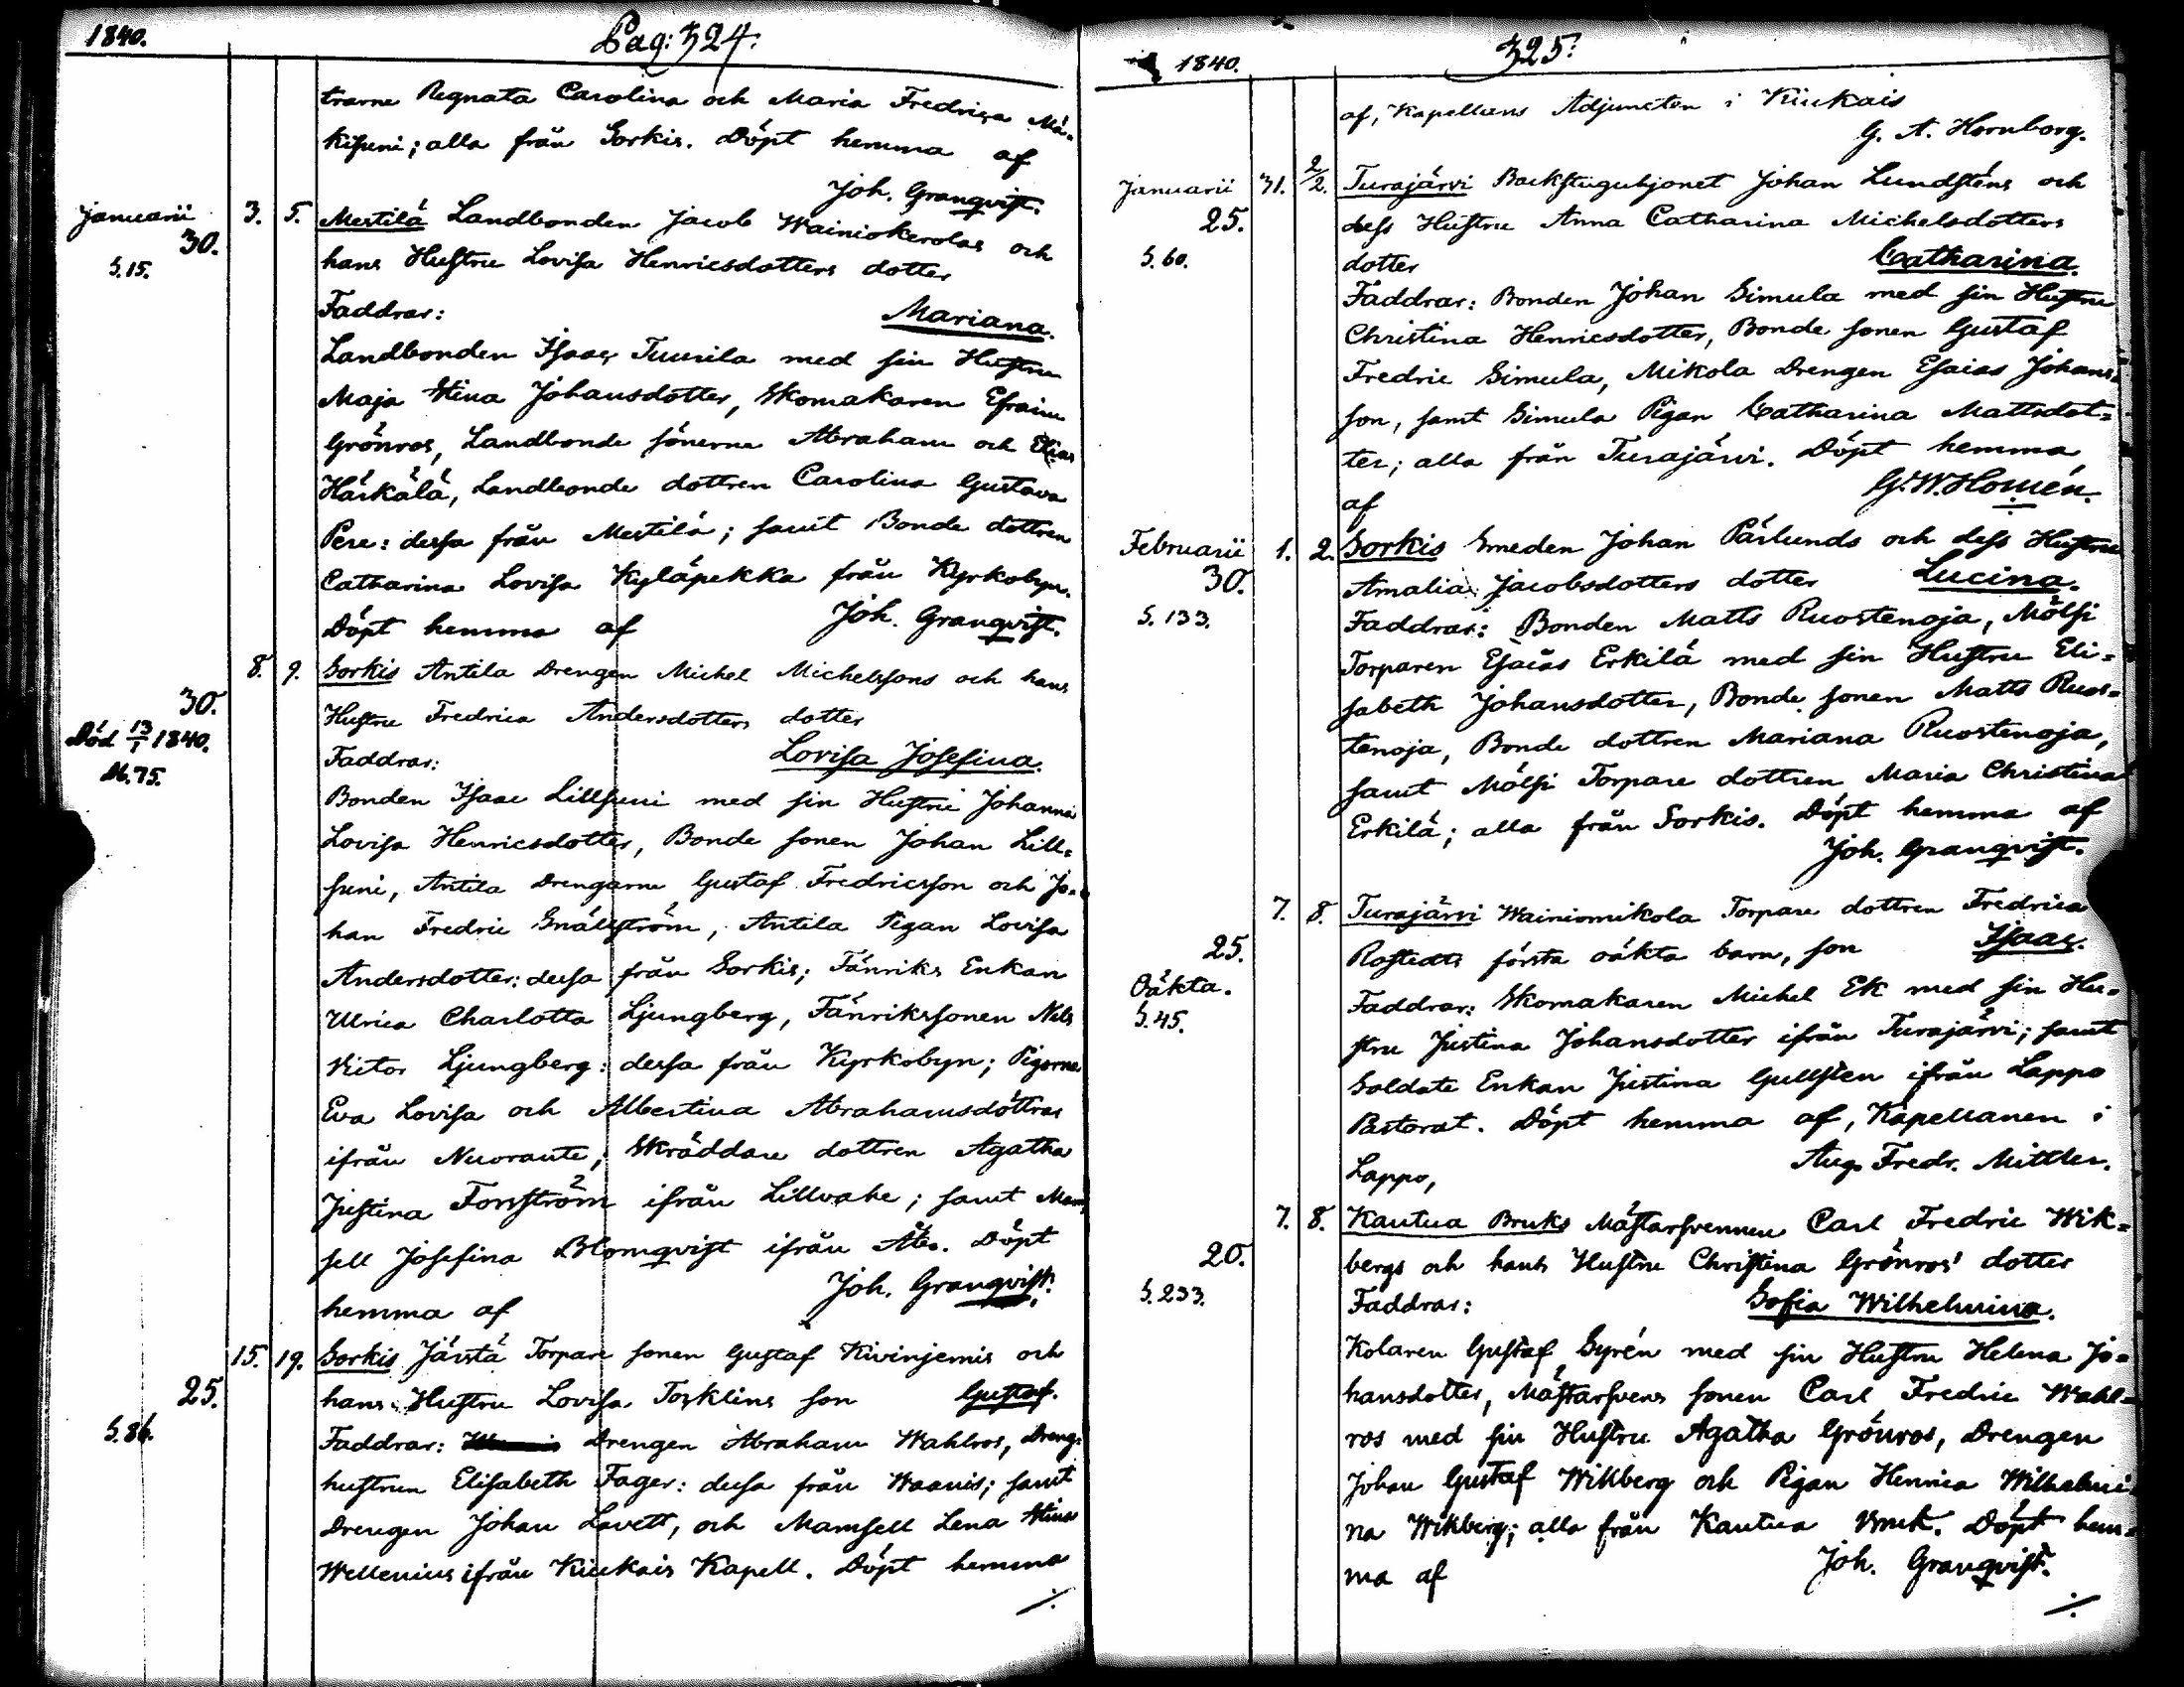 1840.
Pag: 324.
trarne Regnata Carolina och Maria Fredrica Mä=
kisseni; alla från Sorkis. Döpt hemma af
Joh. Granqvist.
Januarii 30. S.15. 3. 5. Mestilä Landbonden Jacob Wainiokerolas och
hans Hustru Lovisa Henricsdotters dotter
Faddrar: Mariana.
Landbonden Isaac Tuurila med sin Hustru
Maja Stina Johansdotter, Skomakaren Efraim
Grönros, Landbonde sönerne Abraham och Elias
Härkälä, Landbonde dottren Carolina Gustava
Pere: dessa från Mestilä; samt Bonde dottren
Catharina Lovisa Kyläpekka från Kyrkobyn.
Döpt hemma af Joh. Granqvist.
30. Död 13/1 1840. M.75. 8. 9. Sorkis Antila Drengen Michel Michelssons och hans
Hustru Fredrica Andersdotters dotter
Faddrar: Lovisa Josefina.
Bonden Isaac Lillseni med sin Hustru Johanna
Lovisa Henricsdotter, Bonde sonen Johan Lill=
seni, Antila Drengarne Gustaf Fredricsson och Jo=
han Fredric Snällström, Antila Pigan Lovisa
Andersdotter: dessa från Sorkis; Fänriks Enkan
Ulrica Charlotta Ljungberg, Fänrikssonen Nils
Victor Ljungberg: dessa från Kyrkobyn; Pigorna
Eva Lovisa och Albertina Abrahamsdöttrar
ifrån Nuoranta, Skräddare dottren Agatha
Justina Forsström ifrån Lillvahe; samt Mam
sell Josefina Blomqvist ifrån Åbo. Döpt
hemma af Joh. Granqvist.
25. S.86. 15. 19. Sorkis Järstä Torpare sonen Gustaf Kivinjemis och
hans Hustru Lovisa Torklins son Gustaf.
Faddrar: Drengen Abraham Wahlros, Dreng
hustrun Elisabeth Fager: dessa från Waanis; samt
Drengen Johan Lavett, och Mamsell Lena Stina
Wellenius ifrån Kiukais Kapell. Döpt hemma
./.
1840.
325.
af, Kapellans Adjuncten i Kiukais
G. A. Hornborg.
Januarii 25. S.60. 31. 2/2. Turajärvi Backstuguhjonet Johan Lundsténs och
dess Hustru Anna Catharina Michelsdotters
dotter Catharina.
Faddrar: Bonden Johan Simula med sin Hustru
Christina Henricsdotter, Bonde sonen Gustaf
Fredric Simula, Mikola Drengen Esaias Johans=
son, samt Simula Pigan Catharina Mattsdot=
ter; alla från Turajärvi. Döpt hemma
af G. W. Homén.
Februarii 30. S.133. 1. 2. Sorkis Smeden Johan Pärlunds och dess Hustru
Amalia Jacobsdotters dotter Lucina.
Faddrar: Bonden Matts Ruostenoja, Mölsi
Torparen Esaias Erkilä med sin Hustru Eli=
sabeth Johansdotter, Bonde sonen Matts Ruos=
tenoja, Bonde dottren Mariana Ruostenoja,
samt Mölsi Torpare dottren Maria Christina
Erkilä; alla från Sorkis. Döpt hemma af
Joh. Granqvist.
25. Oäkta. S.45. 7. 8. Turajärvi Wainiomikola Torpare dottren Fredrica
Rostedts första oäkta barn, son Isaac.
Faddrar: Skomakaren Michel Ek med sin Hu=
stru Justina Johansdotter ifrån Turajärvi; samt
Soldate Enkan Justina Gullsten ifrån Lappo
Pastorat. Döpt hemma af, Kapellanen i
Lappo, Aug. Fredr. Mittler.
20. S.233. 7. 8. Kautua Bruks Mästarsvennen Carl Fredric Wik=
bergs och hans Hustru Christina Grönros' dotter
Faddrar: Sofia Wilhelmina.
Kolaren Gustaf Syrén med sin Hustru Helena Jo=
hansdotter, Mästarsvens sonen Carl Fredric Wahl=
ros med sin Hustru Agatha Grönros, Drengen
Johan Gustaf Wikberg och Pigan Henrica Wilhelmi
na Wikberg; alla från Kautua Bruk. Döpt hem=
ma af Joh. Granqvist.
./.